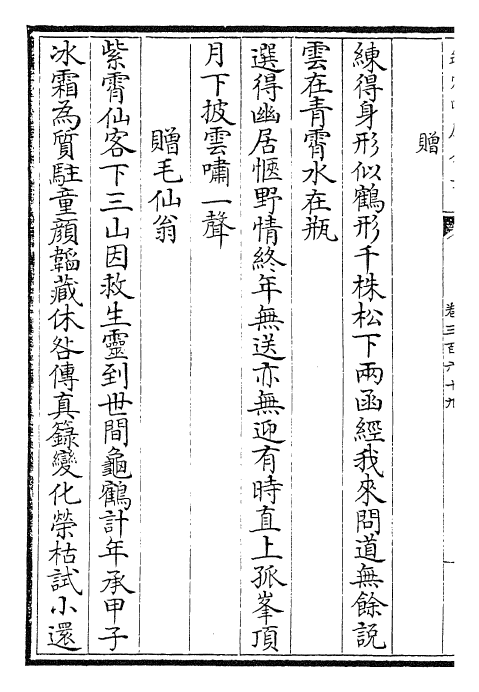 卷三百六十九
贈
練得身形似鶴形千株松下兩函經我來問道無餘説
雲在青霄水在瓶
選得幽居愜野情終年無送亦無迎有時直上孤峯頂
月下披雲嘯一聲
贈毛仙翁
紫霄仙客下三山因救生靈到世間龜鶴計年承甲子
冰霜為質駐童顔韜藏休咎傳真籙變化榮枯試小還